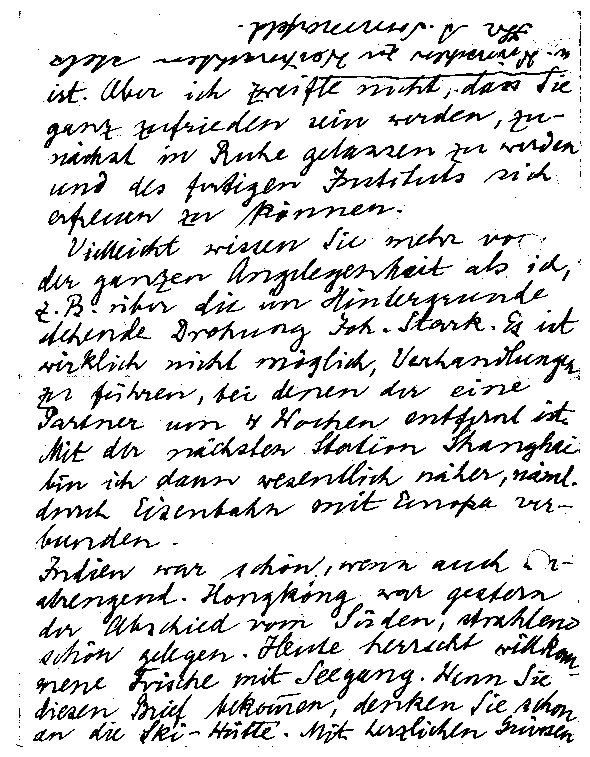 ist. Aber ich zweifle nicht, dass Sie
ganz zufrieden sein werden, zu-
nächst in Ruhe gelassen zu werden
und des fertigen Instituts sich
erfreuen zu können.
Vielleicht wissen Sie mehr von
der ganzen Angelegenheit als ich,
z. B. über die im Hintergrunde
stehende Drohung Joh. Stark. Es ist
wirklich nicht möglich, Verhandlungen
zu führen, bei denen der eine
Partner um 4 Wochen entfernt ist.
Mit der nächsten Station Shanghai
bin ich dann wesentlich näher, näml.
durch Eisenbahn mit Europa ver-
bunden.
Indien war schön, wenn auch an-
strengend. Hongkong war gestern
der Abschied vom Süden, strahlend
schön gelegen. Heute herrscht willkom-
mene Frische mit Seegang. Wenn Sie
diesen Brief bekommen, denken Sie schon
an die Ski-Hütte. Mit herzlichen Grüssen
zu
Ihr A. Sommerfeld.